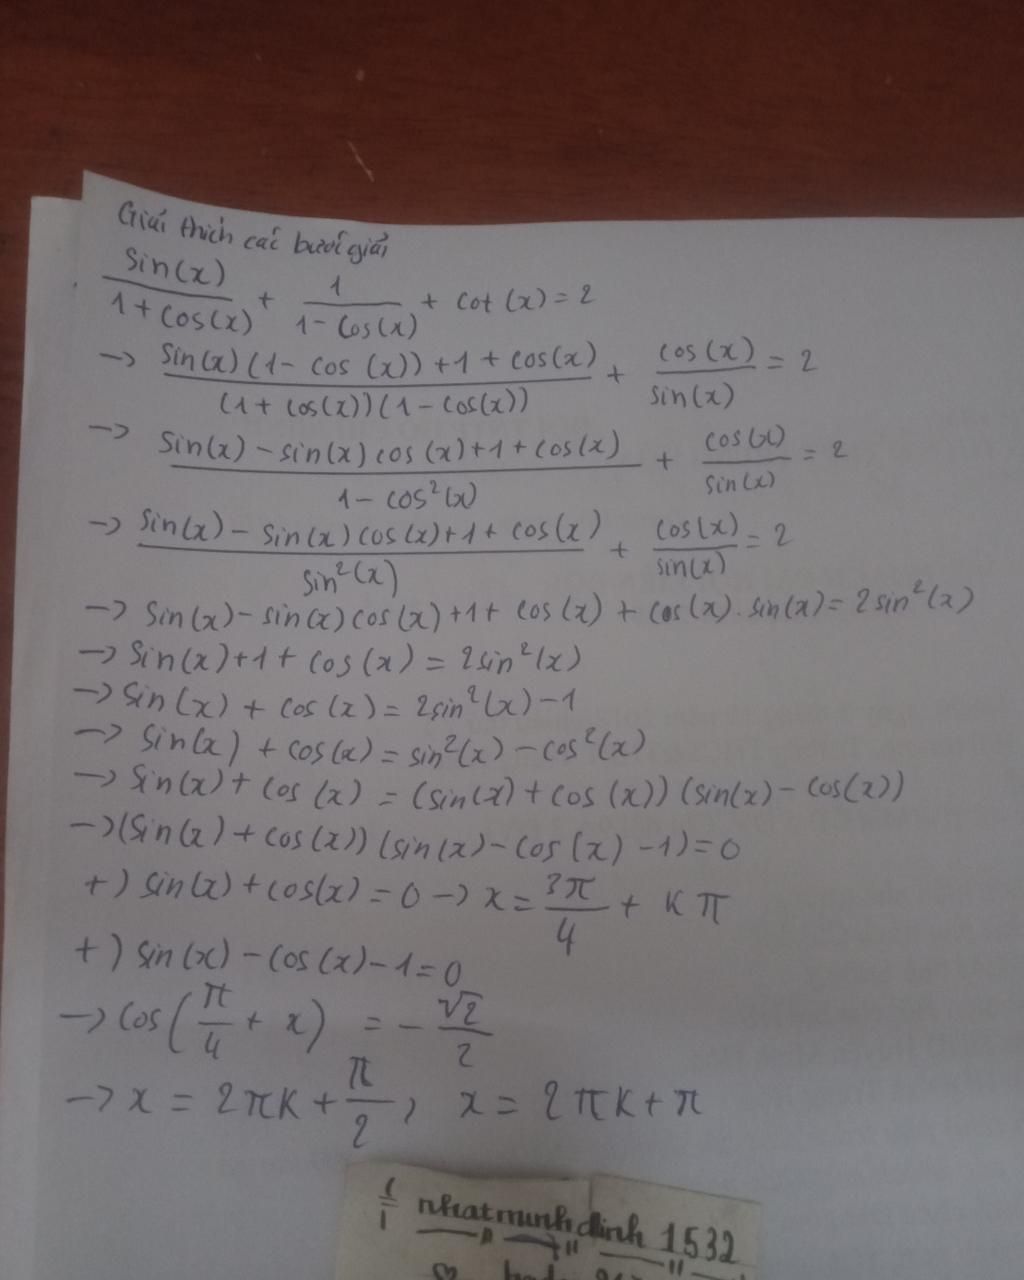 Giải thích các bước giải
sin(x)/(1+cos(x)) + 1/(1-cos(x)) + cot(x) = 2
-> (sin(x)(1-cos(x))+1+cos(x))/((1+cos(x))(1-cos(x))) + cos(x)/sin(x) = 2
-> (sin(x)-sin(x)cos(x)+1+cos(x))/(1-cos²(x)) + cos(x)/sin(x) = 2
-> (sin(x)-sin(x)cos(x)+1+cos(x))/(sin²(x)) + cos(x)/sin(x) = 2
-> sin(x)-sin(x)cos(x)+1+cos(x)+cos(x).sin(x)=2sin²(x)
-> sin(x)+1+cos(x)=2sin²(x)
-> sin(x)+cos(x)=2sin²(x)-1
-> sin(x)+cos(x)=sin²(x)-cos²(x)
-> sin(x)+cos(x)=(sin(x)+cos(x))(sin(x)-cos(x))
-> (sin(x)+cos(x))(sin(x)-cos(x)-1)=0
+) sin(x)+cos(x)=0 -> x = 3π/4 + Kπ
+) sin(x)-cos(x)-1=0
-> cos(π/4 + x) = -√2/2
-> x = 2πK + π/2, x = 2πK + π
nhatminhdinh1532